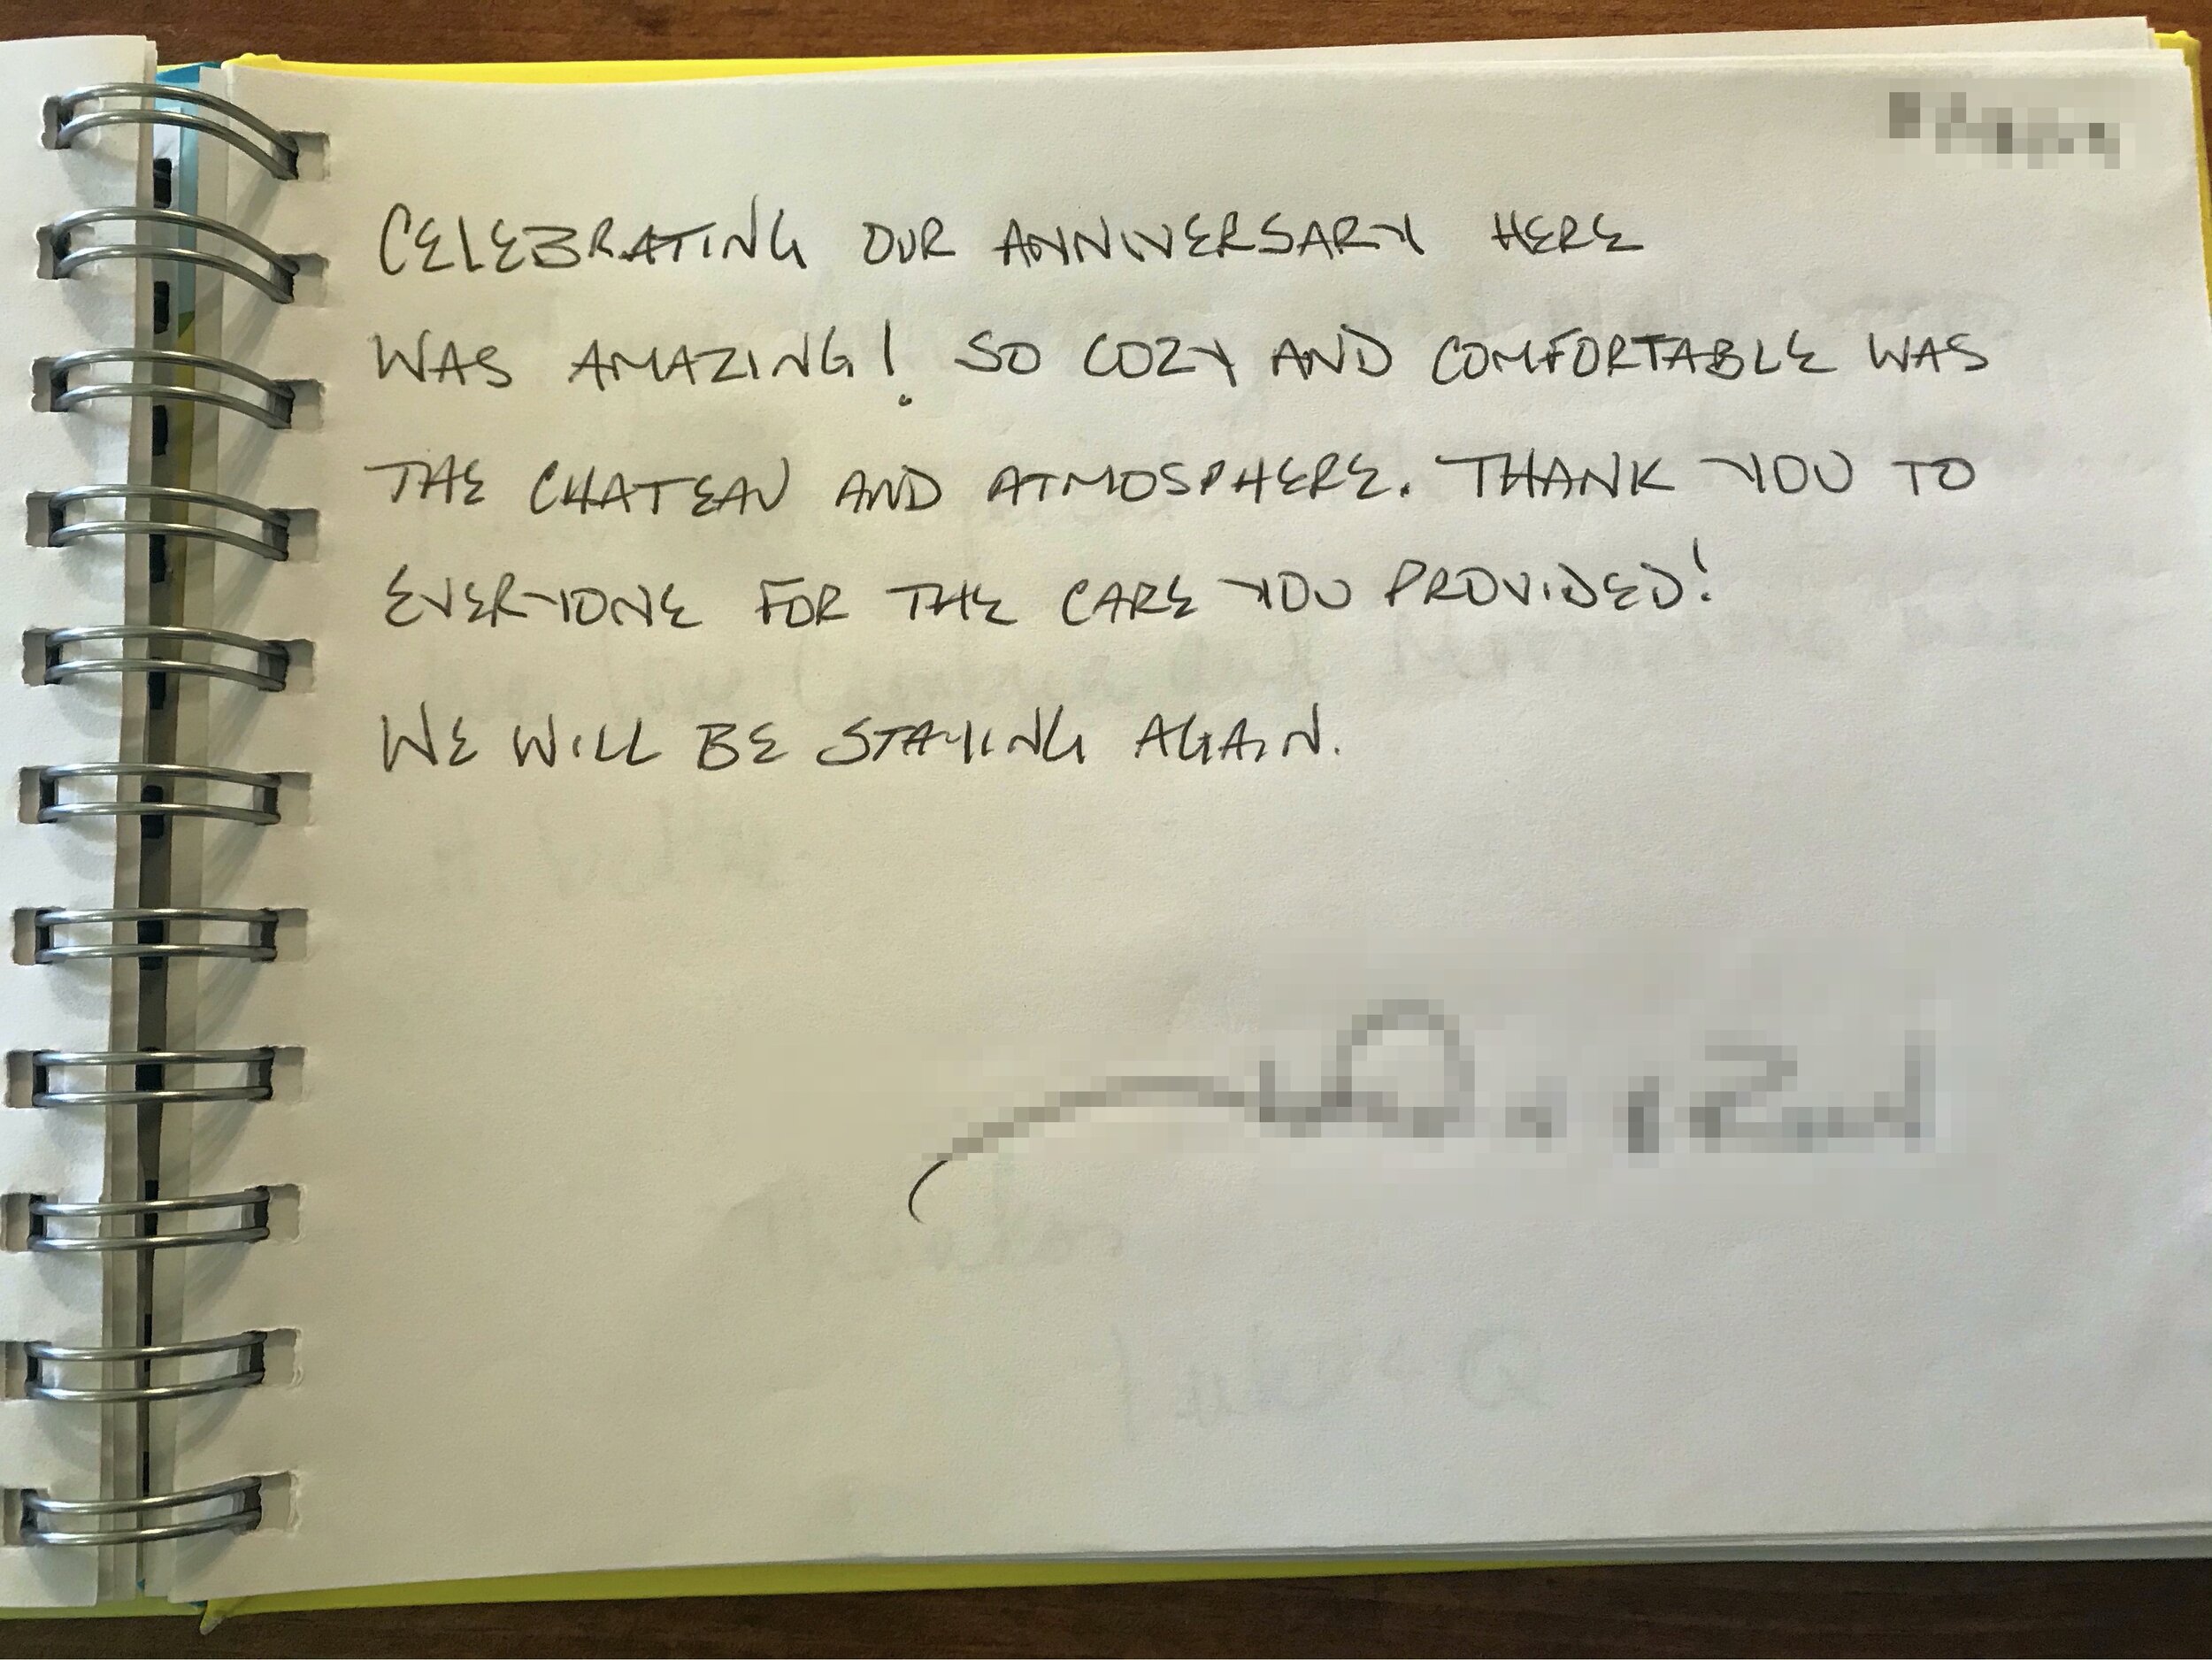 CELEBRATING OUR ANNIVERSARY HERE
WAS AMAZING! SO COZY AND COMFORTABLE WAS
THE CHATEAU AND ATMOSPHERE. THANK YOU TO
EVERYONE FOR THE CARE YOU PROVIDED!
WE WILL BE STAYING AGAIN.